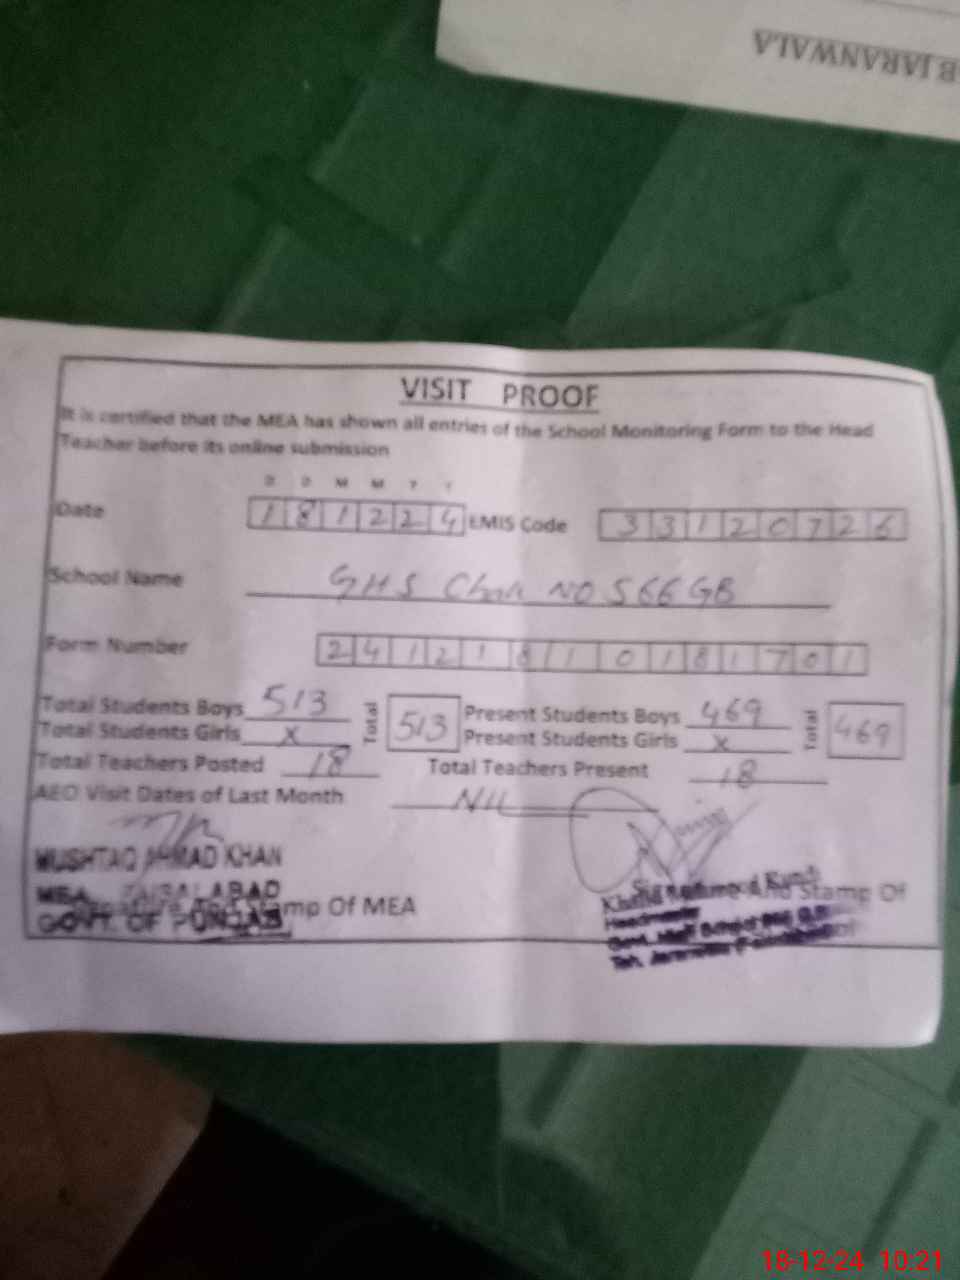 B JARANWALA
VISIT PROOF
It is certified that the MEA has shown all entries of the School Monitoring Form to the Head
Teacher before its online submission
D D M M Y Y
Date 1 8 1 2 2 4 EMIS Code 3 3 1 2 0 7 2 6
School Name GHS Chak NO 566 GB
Form Number 2 4 1 2 1 8 1 0 1 8 1 7 0 1
Total Students Boys 513 Total 513 Present Students Boys 469 Total 469
Total Students Girls x Present Students Girls x
Total Teachers Posted 18 Total Teachers Present 18
AEO Visit Dates of Last Month NIL
MUSHTAQ AHMAD KHAN
MEA FAISALABAD
GOVT. OF PUNJAB
Stamp Of MEA
And Stamp Of
Headmaster
18-12-24 10:21